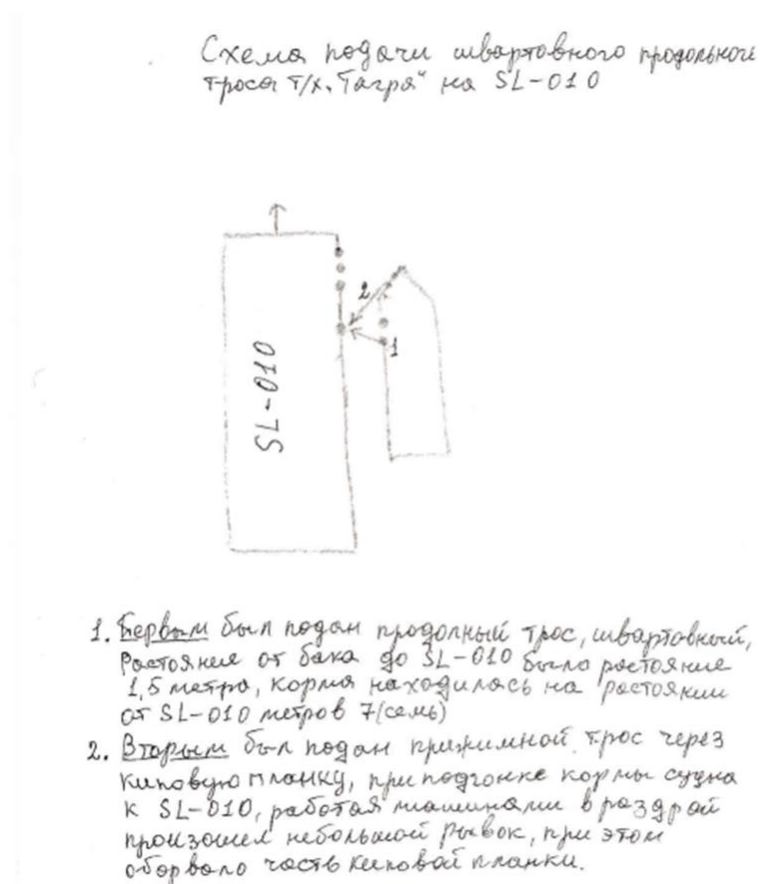 Схема подачи швартовного продольного
троса т/х "Тагра" на SL-010
2
1
SL-010
1. Первым был подан продолный трос, швартовный,
растояние от бака до SL-010 было растояние
1,5 метра, корма находилась на растоянии
от SL-010 метров 7(семь)
2. Вторым был подан прижимной трос через
киповую планку, при подгонке кормы судна
к SL-010, работая машинами враздрай
произошел небольшой рывок, при этом
оборвало часть киповой планки.